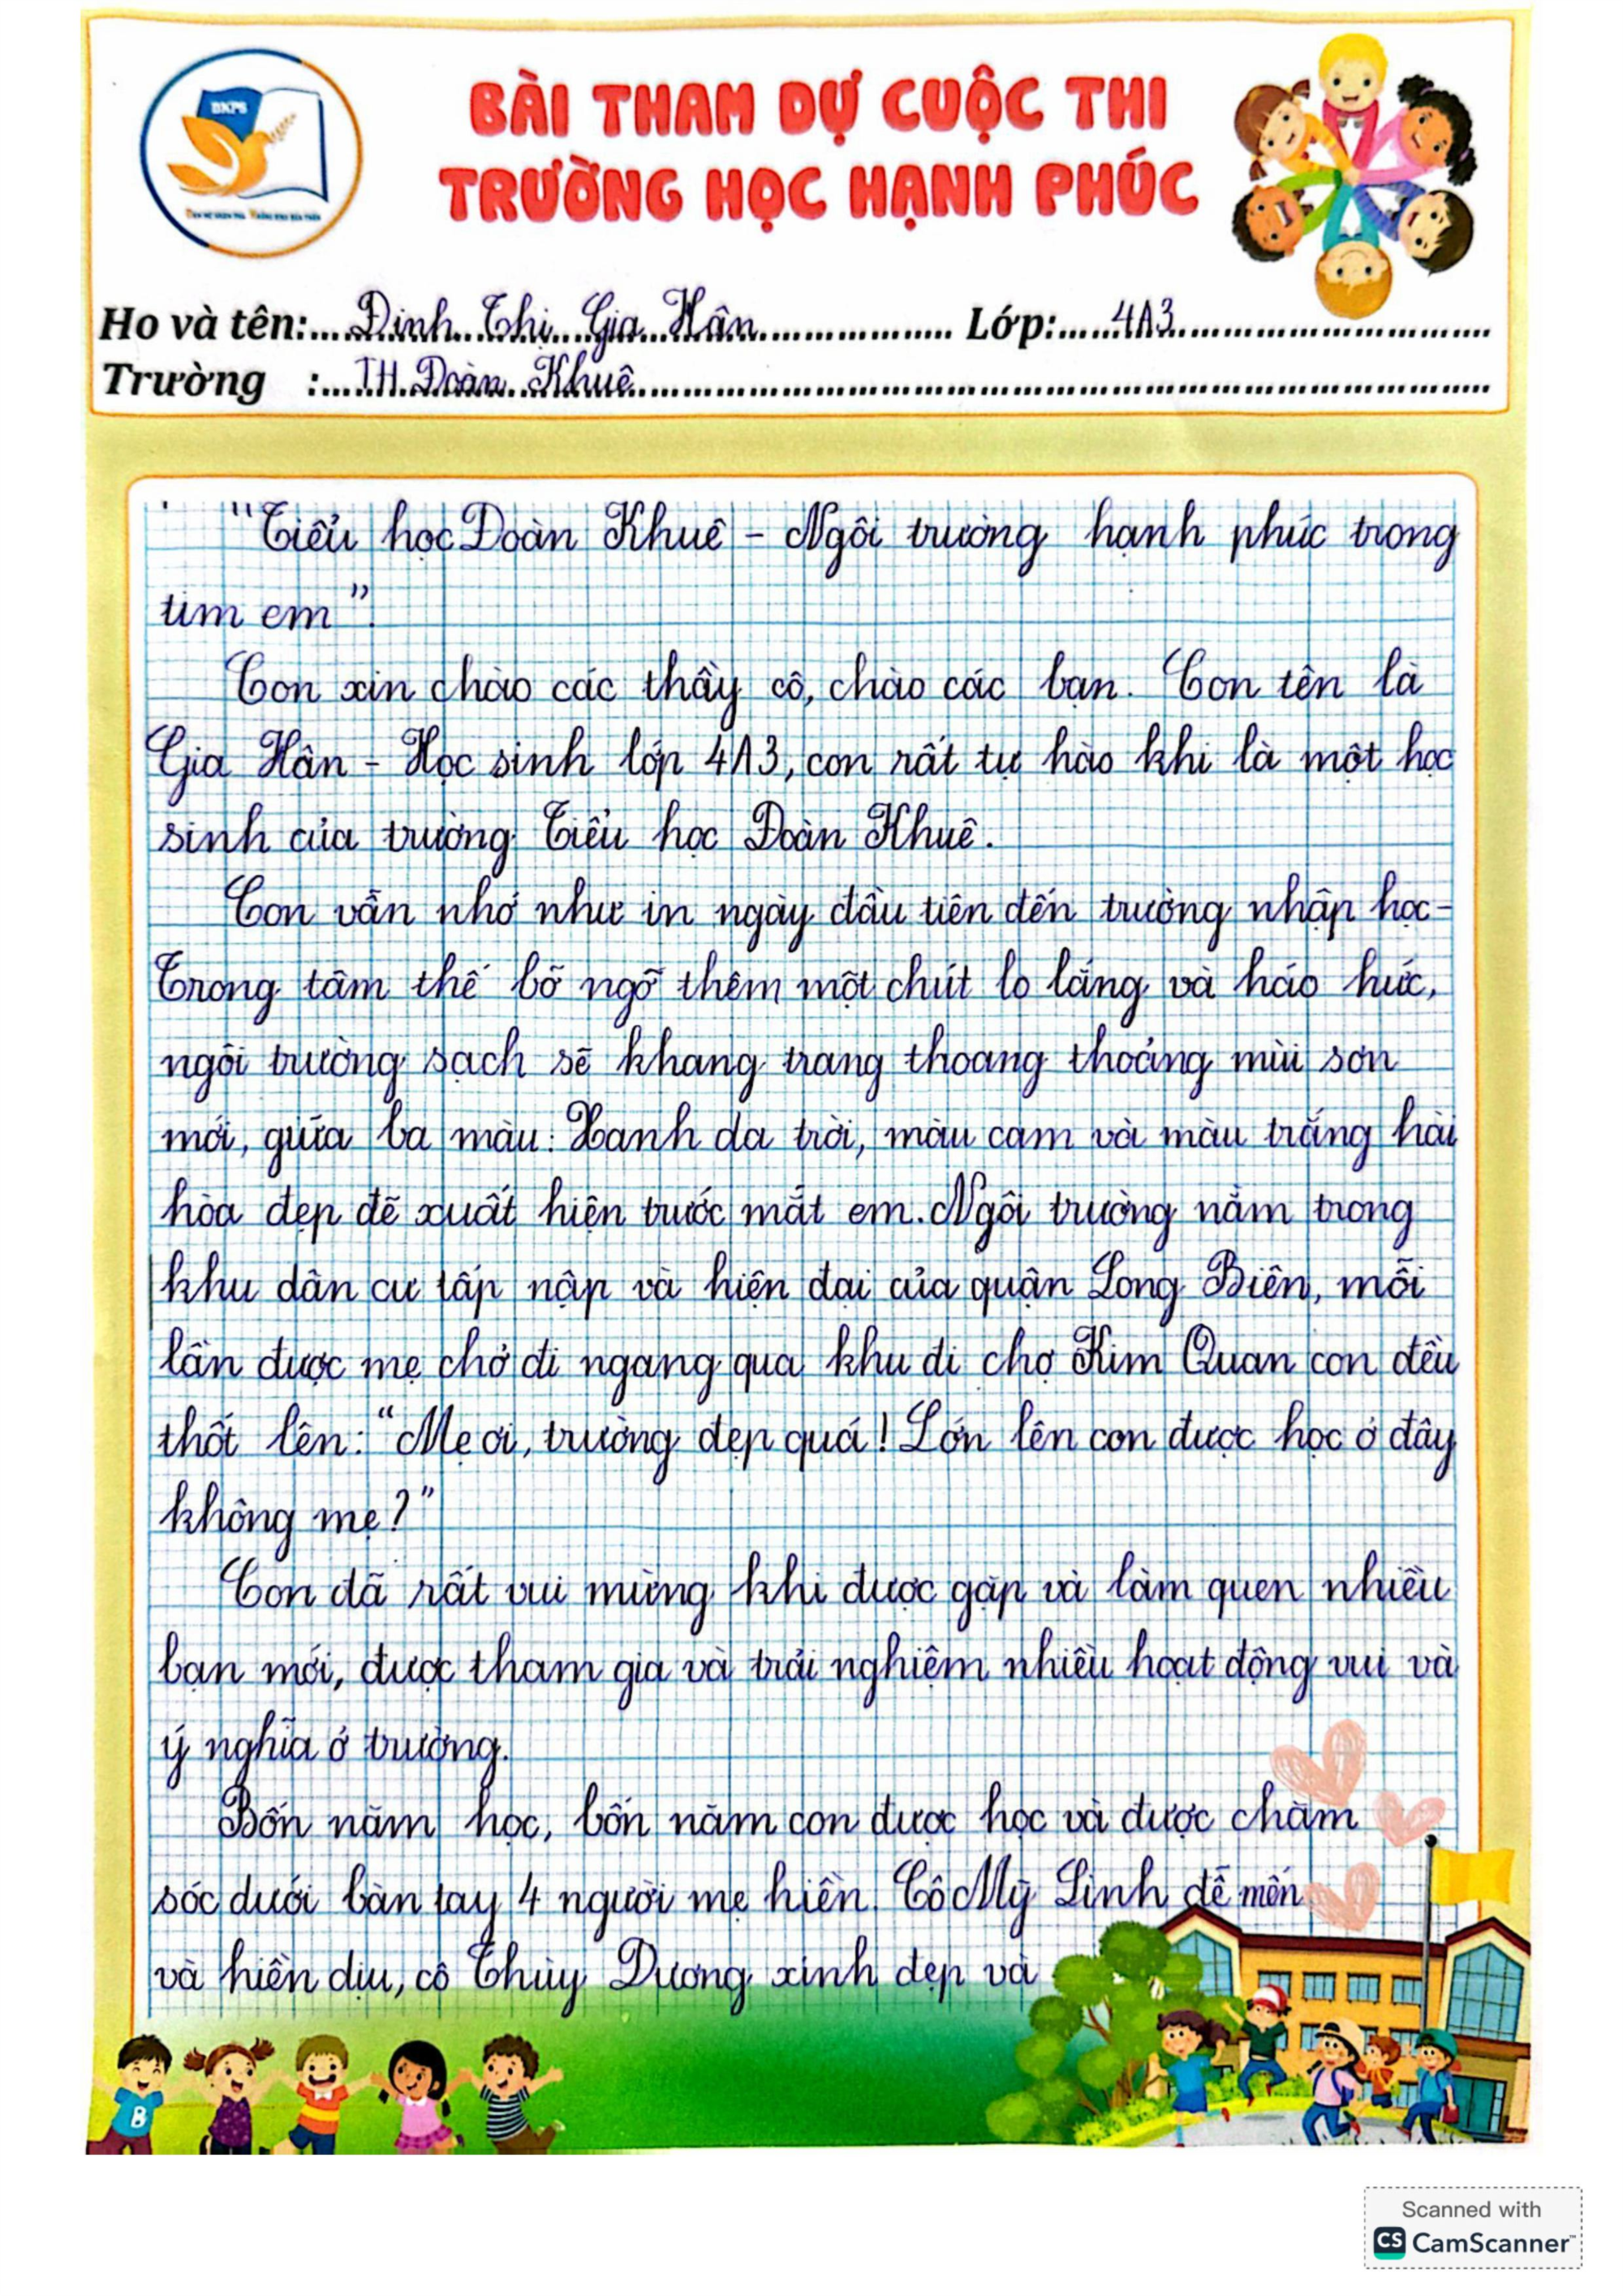 BKPS
BÀI THAM DỰ CUỘC THI
TRƯỜNG HỌC HẠNH PHÚC
Họ và tên:....Đinh Thị Gia Hân.... Lớp:....4A3....
Trường :....TH Đoàn Khuê....
"Tiểu học Đoàn Khuê - Ngôi trường hạnh phúc trong
tim em".
Con xin chào các thầy cô, chào các bạn. Con tên là
Gia Hân - Học sinh lớp 4A3, con rất tự hào khi là một học
sinh của trường Tiểu học Đoàn Khuê.
Con vẫn nhớ như in ngày đầu tiên đến trường nhập học-
Trong tâm thế bỡ ngỡ thêm một chút lo lắng và háo hức,
ngôi trường sạch sẽ khang trang thoang thoảng mùi sơn
mới, giữa ba màu: Xanh da trời, màu cam và màu trắng hài
hòa đẹp đẽ xuất hiện trước mắt em. Ngôi trường nằm trong
khu dân cư tấp nập và hiện đại của quận Long Biên, mỗi
lần được mẹ chở đi ngang qua khu đi chợ Kim Quan con đều
thốt lên: "Mẹ ơi, trường đẹp quá! Lớn lên con được học ở đây
không mẹ?"
Con đã rất vui mừng khi được gặp và làm quen nhiều
bạn mới, được tham gia và trải nghiệm nhiều hoạt động vui và
ý nghĩa ở trường.
Bốn năm học, bốn năm con được học và được chăm
sóc dưới bàn tay 4 người mẹ hiền. Cô Mỹ Linh dễ mến
và hiền dịu, cô Thùy Dương xinh đẹp và
B
Scanned with
CS CamScanner™